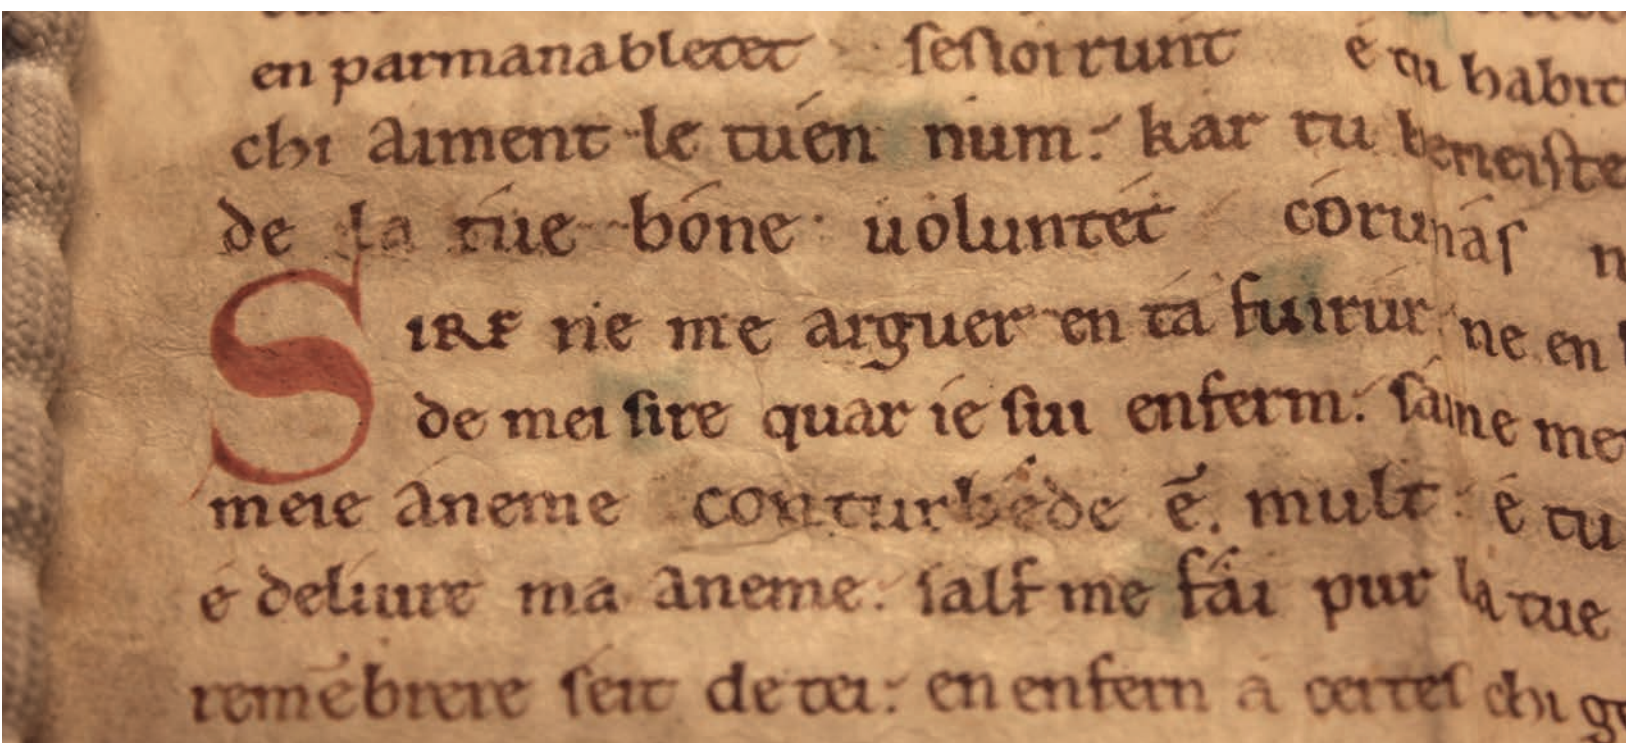 en parmanabletet sesioirunt é tu habit
chi aiment le tuén num: kar tu beneiste
de la túe bóne uóluntét córunás n
SIRE ne me arguer en tá fuirúr ne en
de mei sire quar ie sui enferm: sáine me
meie aneme conturbéde ē. mult: é tu
é deliure ma aneme: salf me fái pur la tue
remēbrere seit de tei: en enfern a certes chi ge